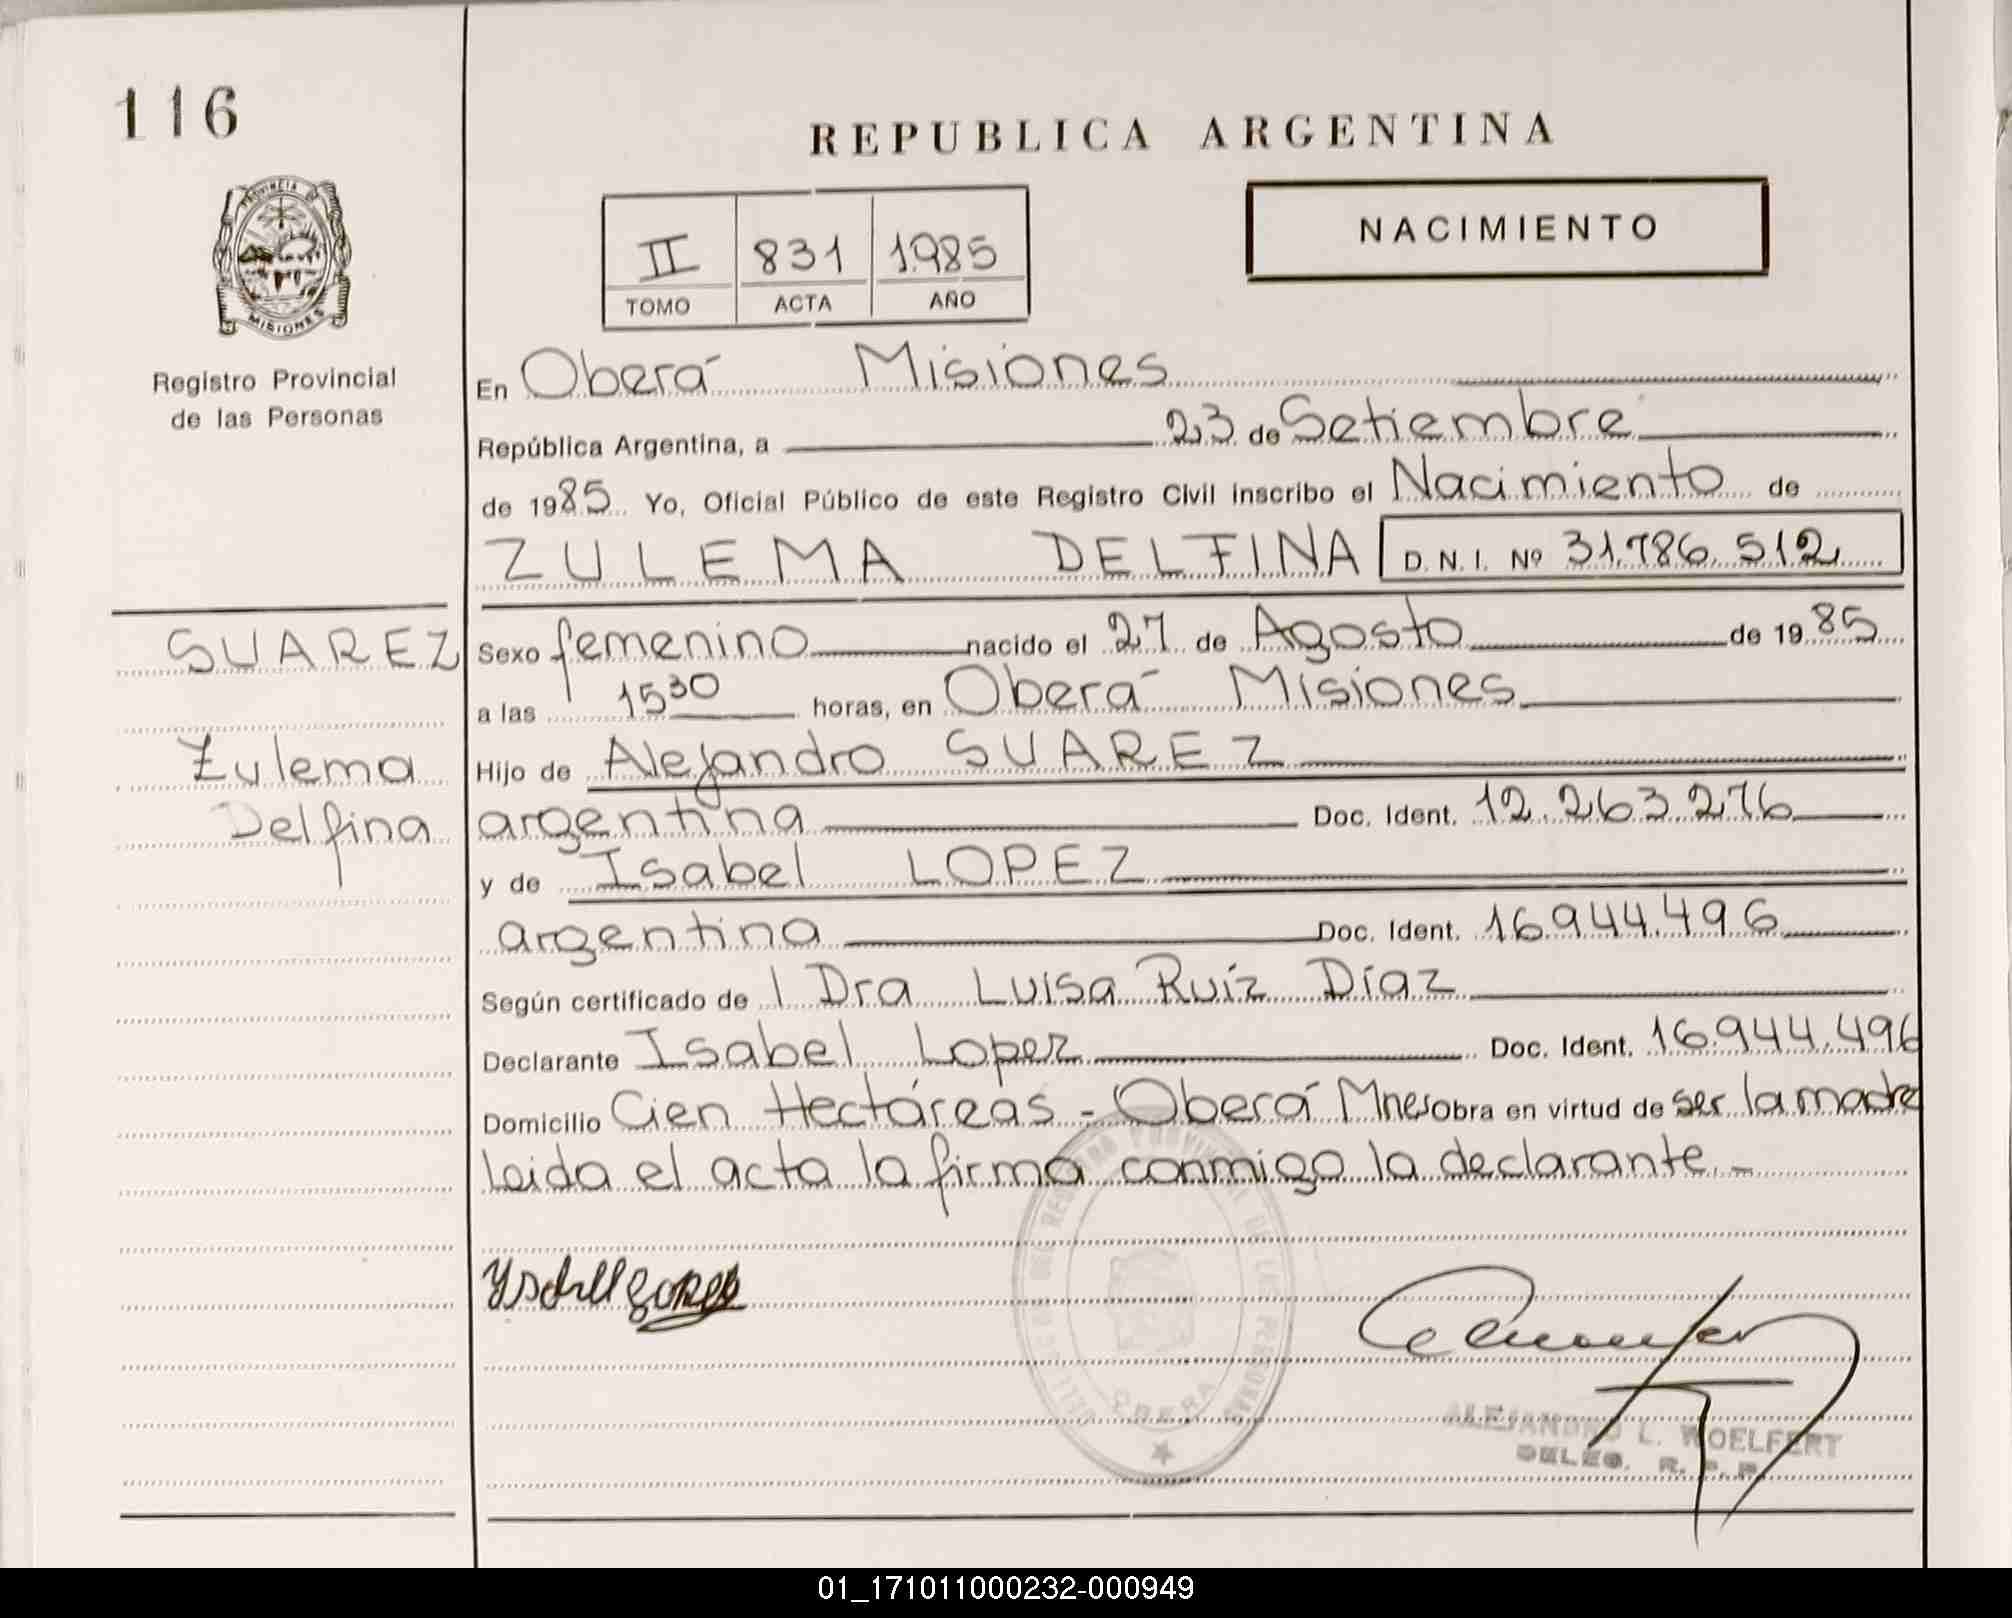 116
REPUBLICA ARGENTINA
PROVINCIA
MISIONES
II 831 1.985
TOMO ACTA AÑO
NACIMIENTO
Registro Provincial
de las Personas
En Oberá Misiones
República Argentina, a 23 de Setiembre
de 1985 Yo, Oficial Público de este Registro Civil inscribo el Nacimiento de
ZULEMA DELFINA D.N.I. Nº 31.786.512
SUAREZ
Zulema
Delfina
Sexo femenino nacido el 27 de Agosto de 1985
a las 15 30 horas, en Oberá Misiones
Hijo de Alejandro SUAREZ
argentina Doc. Ident. 12.263.276
y de Isabel LOPEZ
argentina Doc. Ident. 16.944.496
Según certificado de l Dra Luisa Ruíz Díaz
Declarante Isabel Lopez Doc. Ident. 16.944.496
Domicilio Cien Hectáreas - Oberá Mnes Obra en virtud de ser la madre
leida el acta la firma conmigo la declarante.-
OBERA
ALEJANDRO L. WOELFERT
DELEG. R. P. P.
01_171011000232-000949